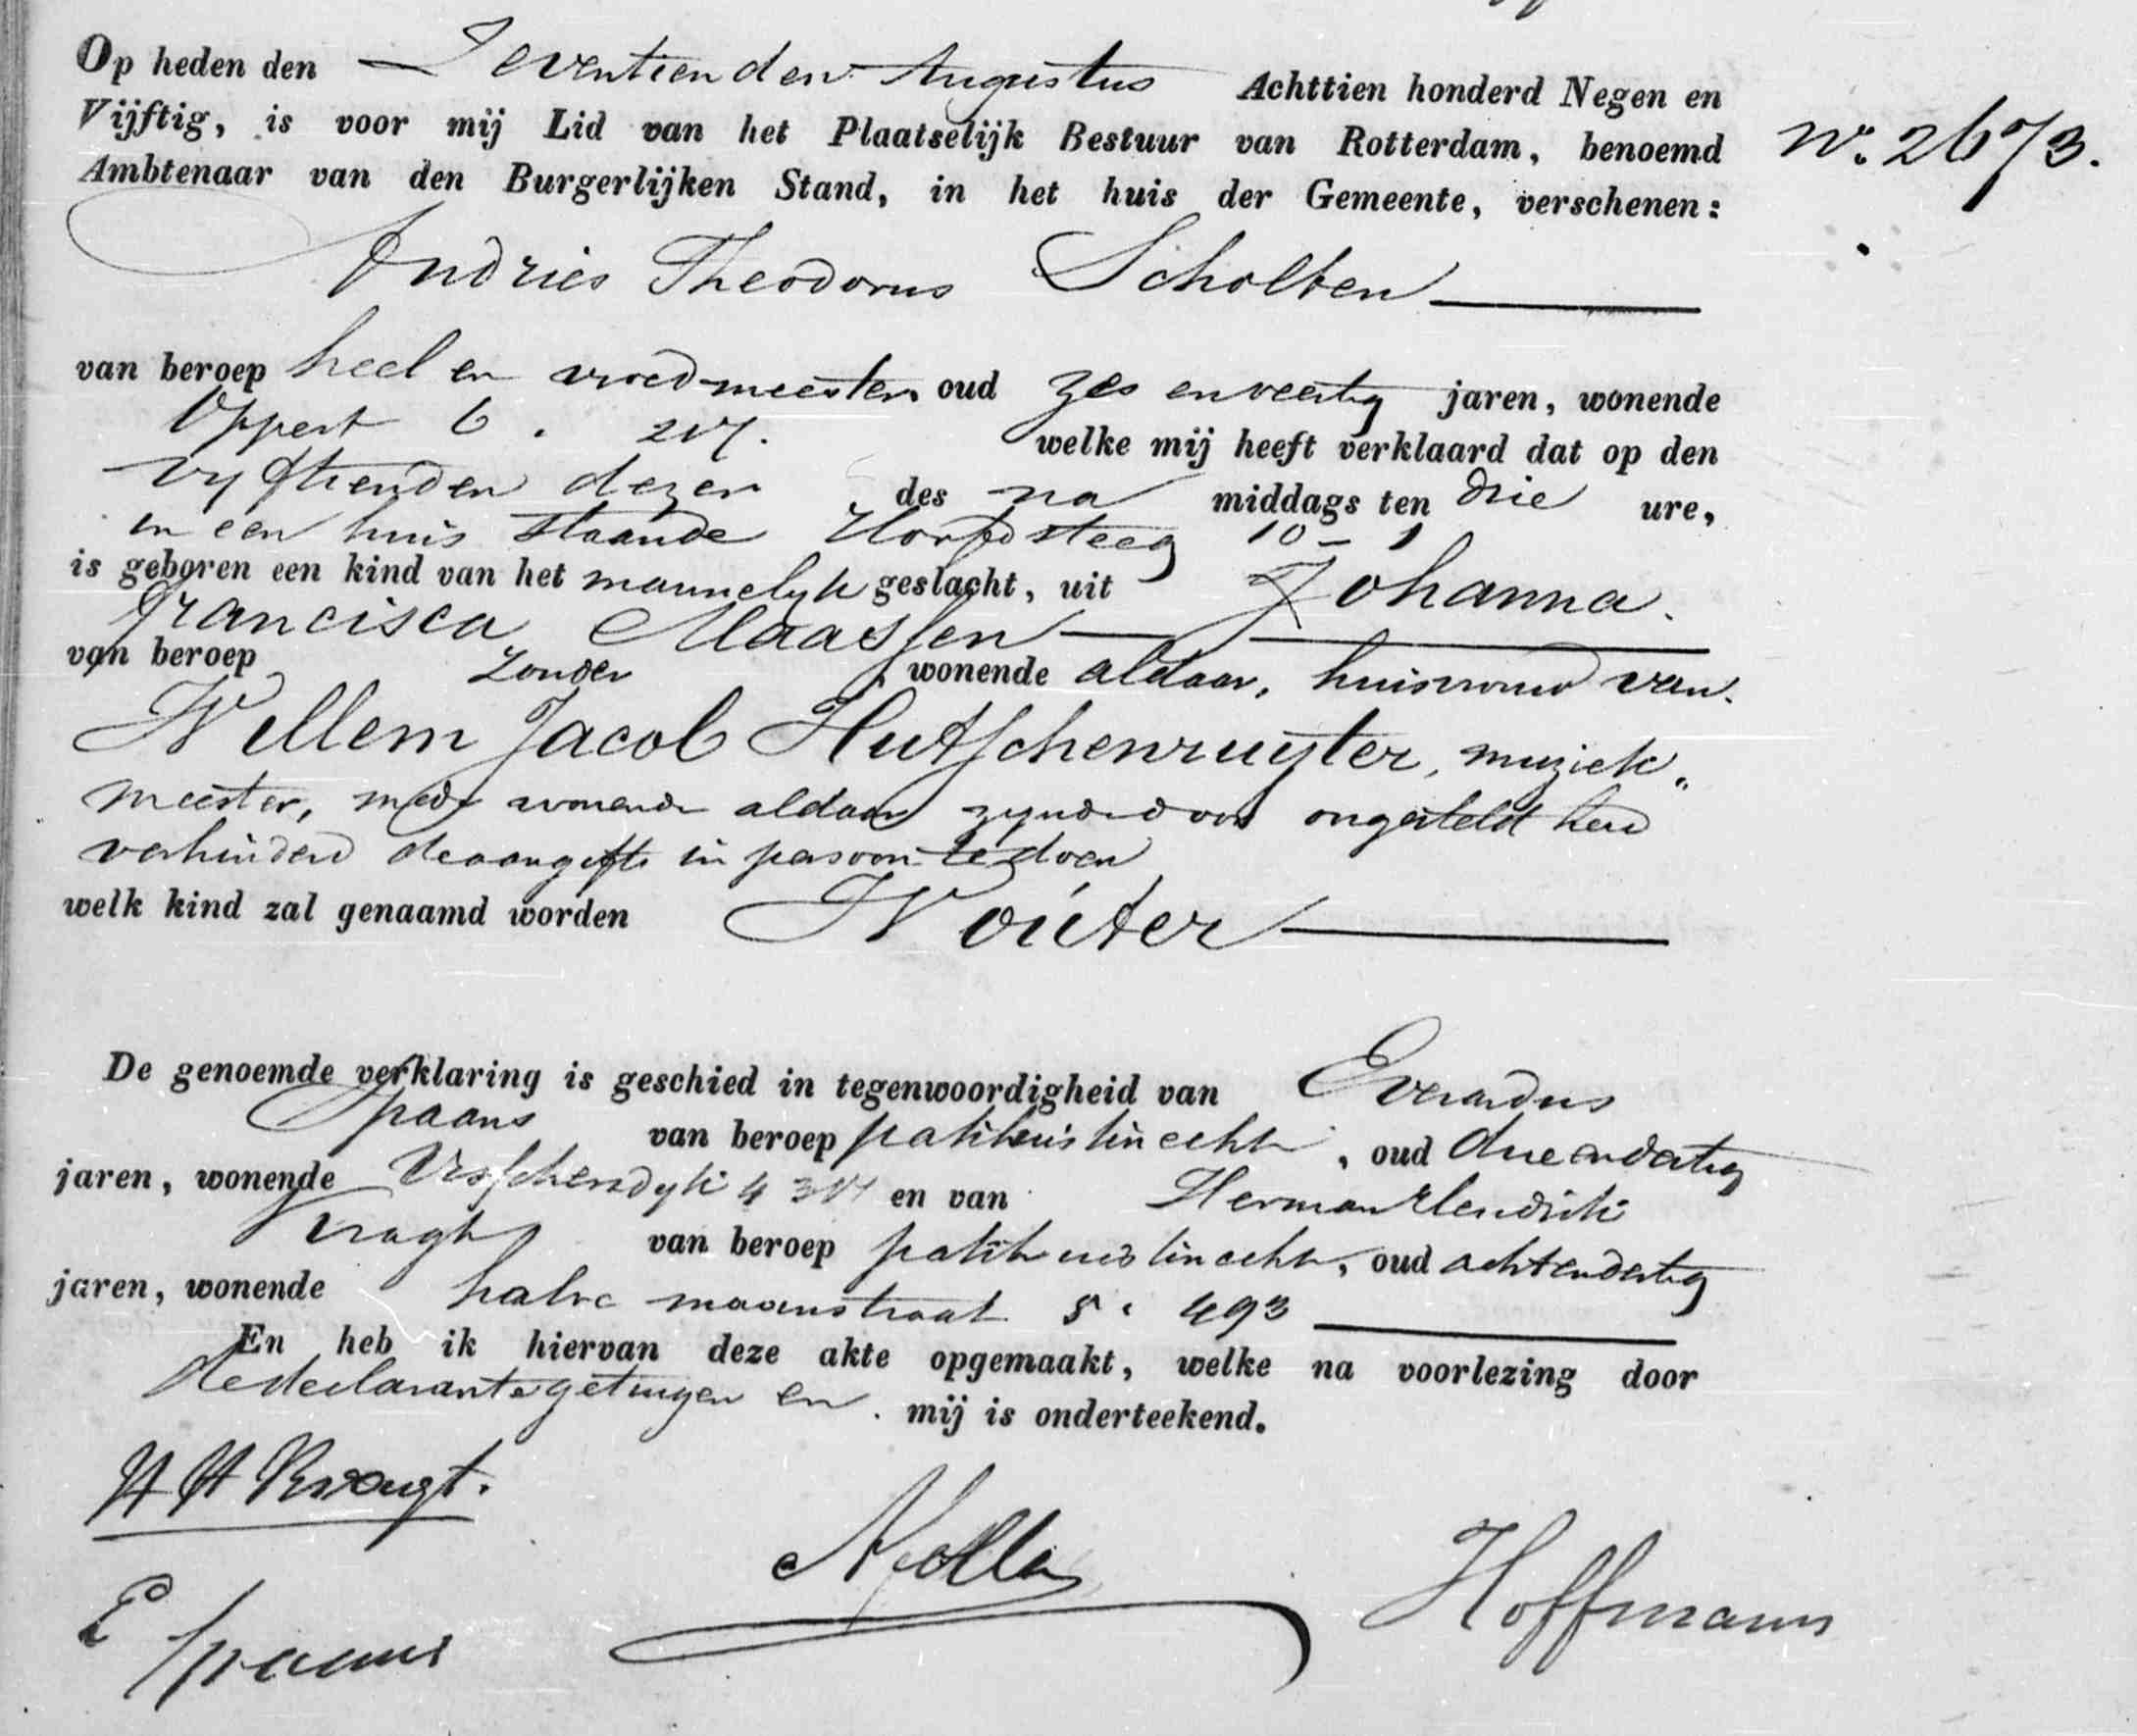 Op heden den Zeventienden Augustus Achttien honderd Negen en
Vijftig, is voor mij Lid van het Plaatselijk Bestuur van Rotterdam, benoemd
No. 2673.
Ambtenaar van den Burgerlijken Stand, in het huis der Gemeente, verschenen:
Andries Theodorus Scholten
van beroep heel en vroedmeester oud zes en veertig jaren, wonende
Oppert 6. 217. welke mij heeft verklaard dat op den
vyftienden dezer des na middags ten drie ure,
in een huis staande Hoofdsteeg 10 - 1
is geboren een kind van het mannelyk geslacht, uit Johanna
Francisca Maassen
van beroep zonder wonende aldaar, huisvrouw van
Willem Jacob Hutschenruijter, muziek„
meester, mede wonende aldaar zynde door ongesteldheid
verhinderd de aangifte in persoon te doen
welk kind zal genaamd worden Woúter
De genoemde verklaring is geschied in tegenwoordigheid van Everardus
Spaans van beroep pakhuisknecht, oud drie en dertig
jaren, wonende en van Herman Hendrik
Kragt van beroep pakhuisknecht, oud acht en dertig
jaren, wonende halve maanstraat 5. 493
En heb ik hiervan deze akte opgemaakt, welke na voorlezing door
de declarant getuigen en mij is onderteekend.
H H Kragt.
Hoffmann
E Spaans